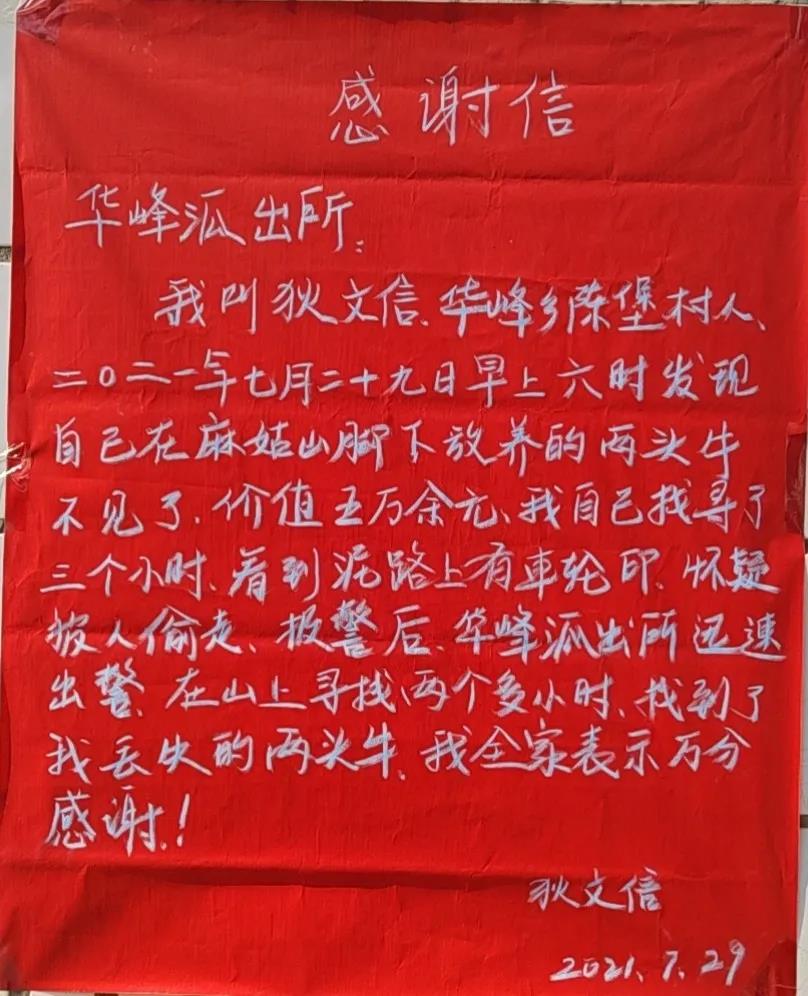 感谢信
华峰派出所:
我叫狄文信、华峰乡陈堡村人、
二〇二一年七月二十九日早上六时发现
自己在麻姑山脚下放养的两头牛
不见了、价值五万余元、我自己找寻了
三个小时、看到泥路上有車轮印、怀疑
被人偷走、报警后、华峰派出所迅速
出警、在山上寻找两个多小时、找到了
我丢失的两头牛、我全家表示万分
感谢!
狄文信
2021.7.29